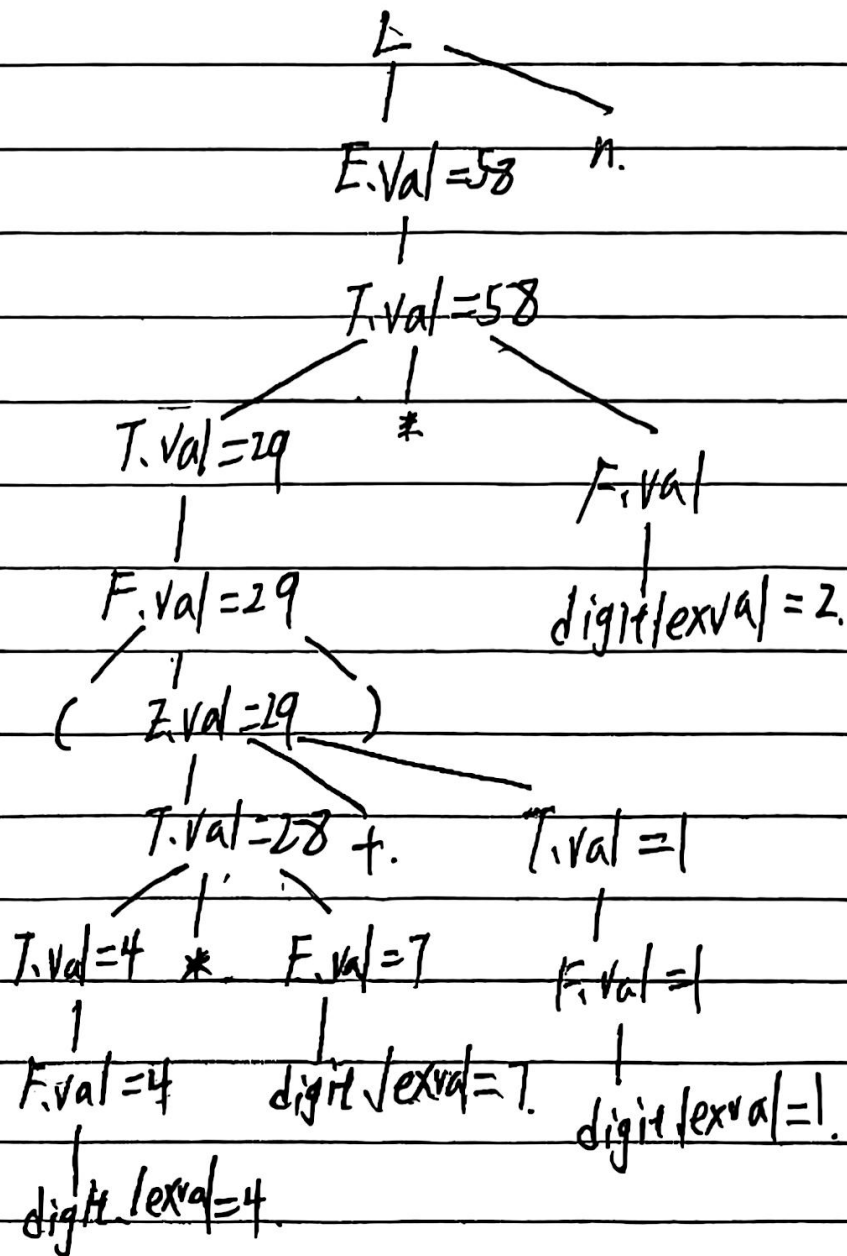 L
E.val=58 n.
T.val=58
T.val=29 * F.val
F.val=29 digit lexval=2.
( E.val=29 )
T.val=28 +. T.val=1
T.val=4 * F.val=7 F.val=1
F.val=4 digit lexval=7. digit lexval=1.
digit.lexval=4.